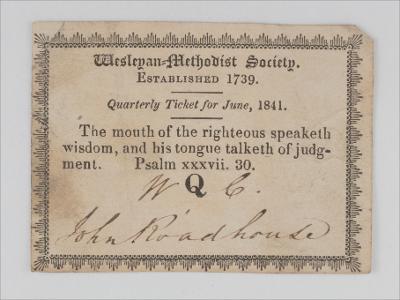 Wesleyan-Methodist Society.
Established 1739.
Quarterly Ticket for June, 1841.
The mouth of the righteous speaketh
wisdom, and his tongue talketh of judg-
ment. Psalm xxxvii. 30.
W Q C.
John Roadhouse